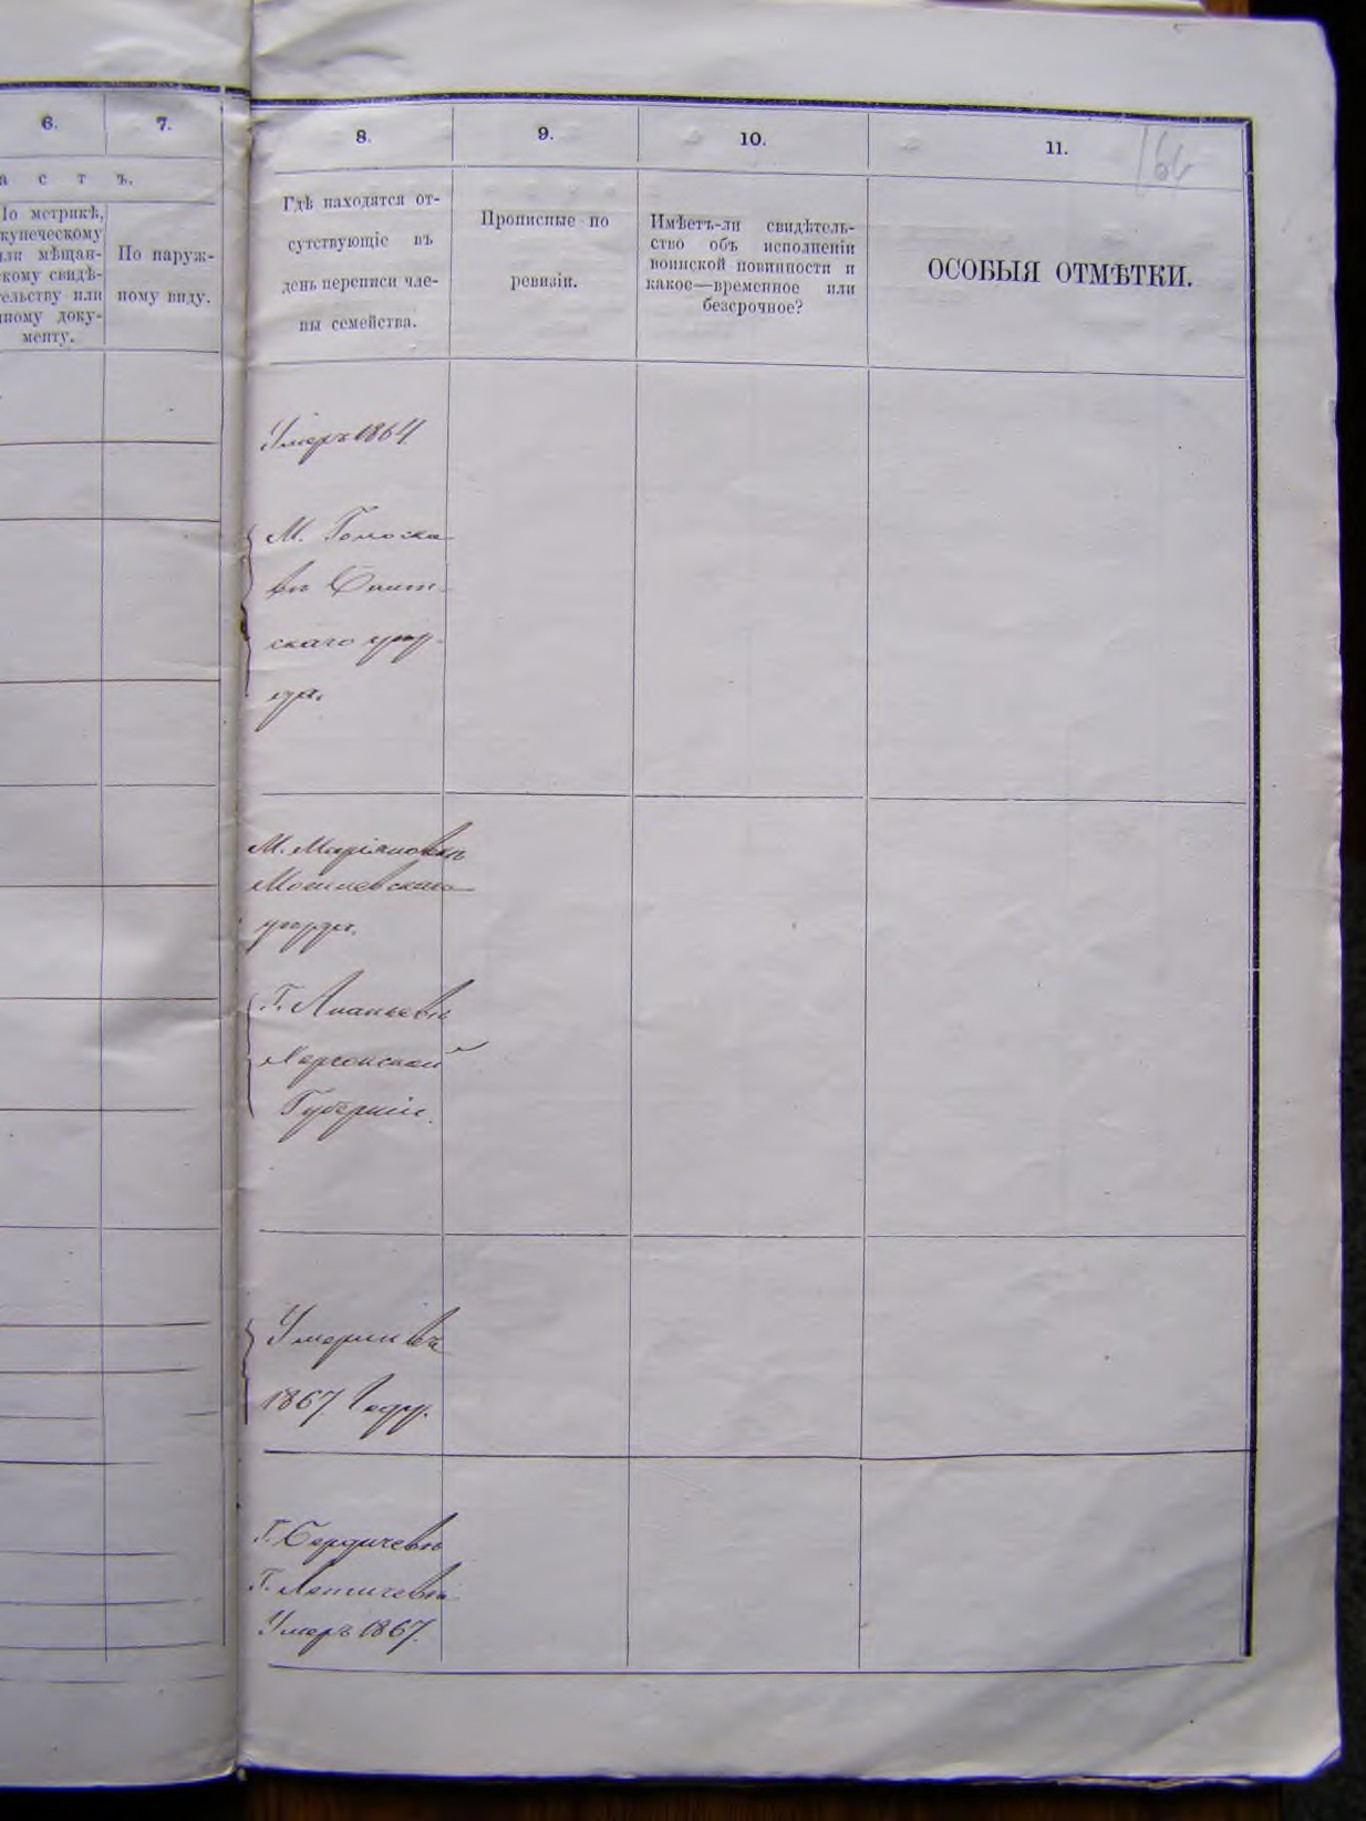 6.
7.
8.
9.
10.
11.
а с т ъ.
По метрикѣ,
купеческому
или мѣщан-
скому свидѣ-
тельству или
иному доку-
менту.
По наруж-
ному виду.
Гдѣ находятся от-
сутствующіе въ
день переписи чле-
ны семейства.
Прописные по
ревизіи.
Имѣетъ-ли свидѣтель-
ство объ исполненіи
воинской повинности и
какое—временное или
безсрочное?
ОСОБЫЯ ОТМѢТКИ.
Умеръ 1864
М. Голоска
въ
скаго уѣз-
зда.
М. Маріяновкѣ
Могилевскаго
уѣзда.
Г. Ананьевѣ
Херсонской
Губерніи.
Умерли въ
1867 Году.
Г. Бердичевѣ
Г. Летичевѣ
Умеръ 1867.